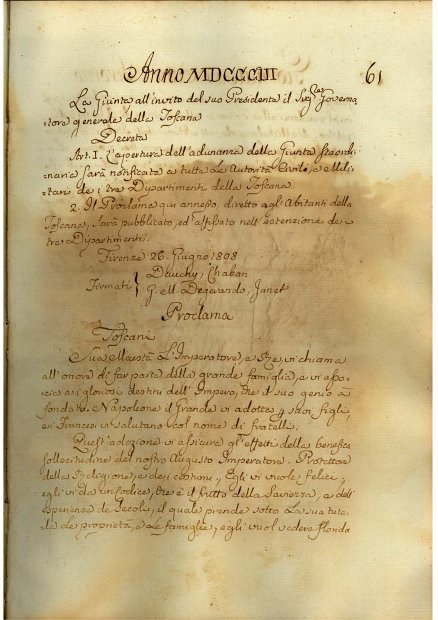 Anno MDCCCIII
61
La Giunta all'invito del suo Presidente il Sig.r Governa
tore generale della Toscana
Decreta
Art. I. L'apertura dell'adunanza della Giunta straordi
naria sarà notificata a tutte le Autorità Civili, e Mili
tari de i tre Dipartimenti della Toscana
2. Il Proclama qui annesso, diretto agli Abitanti della
Toscana, sarà pubblicato, ed affissato nell'estenzione de i
tre Dipartimenti.
Firenze 26. Giugno 1808
Firmati
Dauchy, Chaban
G.ell Degerando, Janet
Proclama
Toscani
Sua Maestà L'Imperatore, e Re, vi chiama
all'onore di far parte della grande famiglia, e vi asso
cia ai gloriosi destini dell'Impero, che il suo genio à
fondato. Napoleone il Grande vi adotta per suoi figli,
ei Francesi vi salutano col nome di fratelli.
Quest'adozione vi assicura gl'effetti della benefica
sollecitudine del nostro Augusto Imperatore. Protettore
della Religione, e dei costumi, Egli vi vuole felici,
egli vi dà un Codice, che è il frutto della Saviezza, e dell'
esperienza de Secoli, il quale prende sotto la sua tute
la le proprietà, e le famiglie, egli vuol vedere f